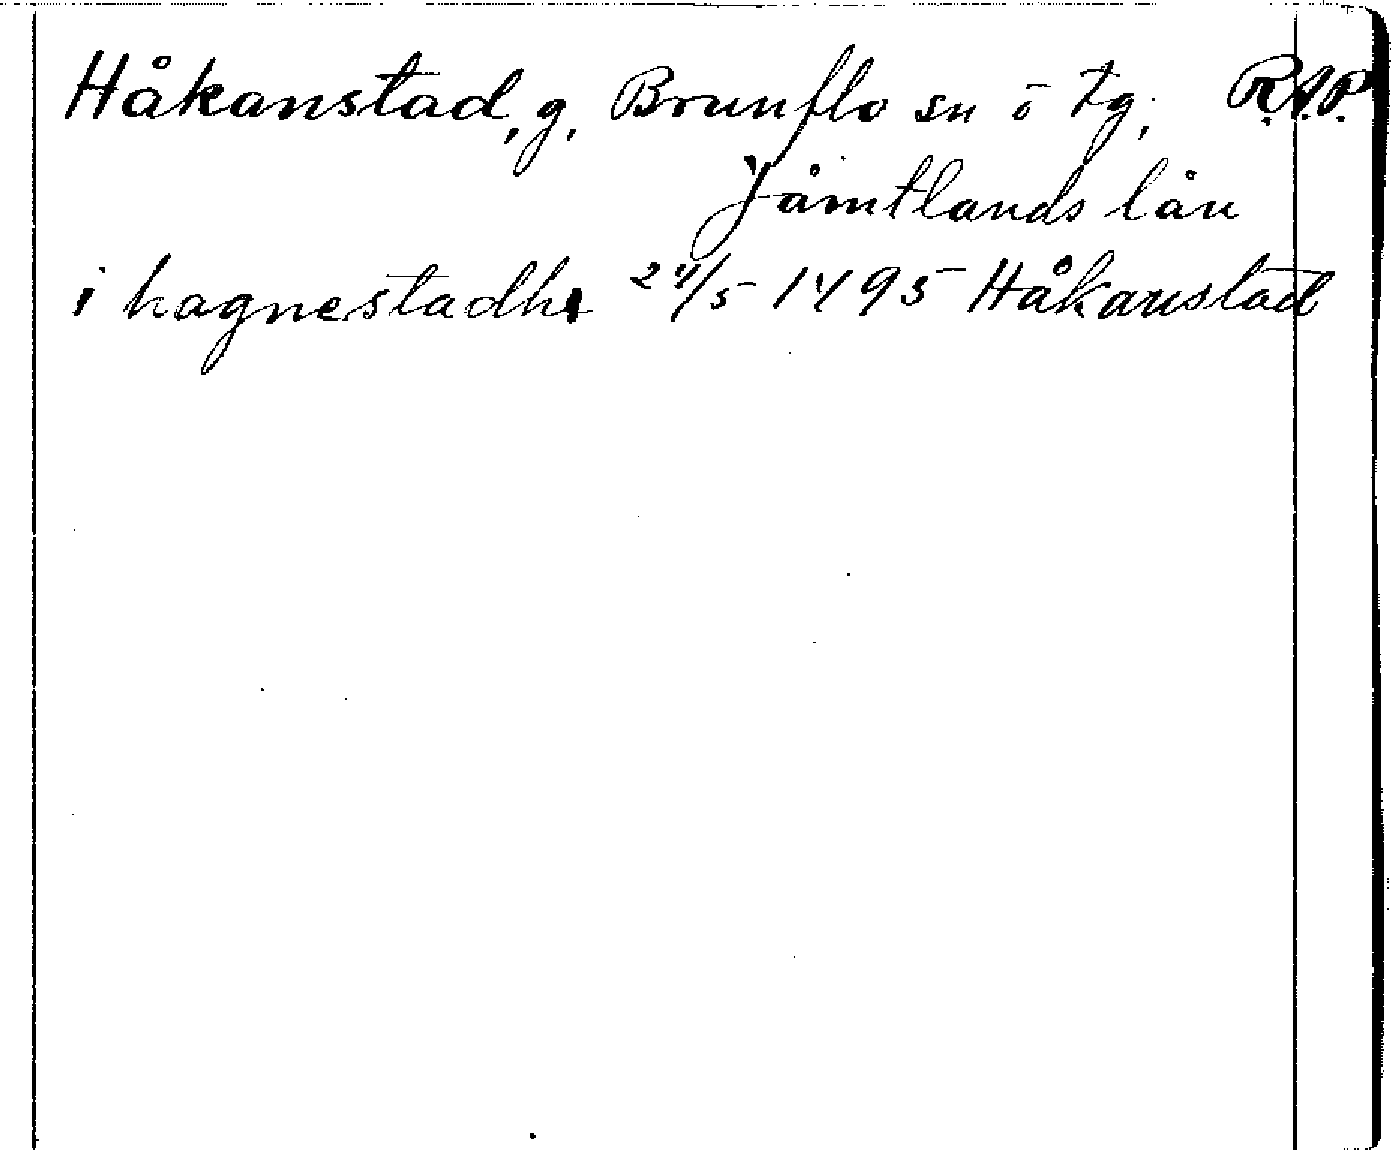 Håkanstad, g, Brunflo sn ö tg, R.A.P.
Jämtlands län
i hagnestadhe 24/5 1495 Håkanstad